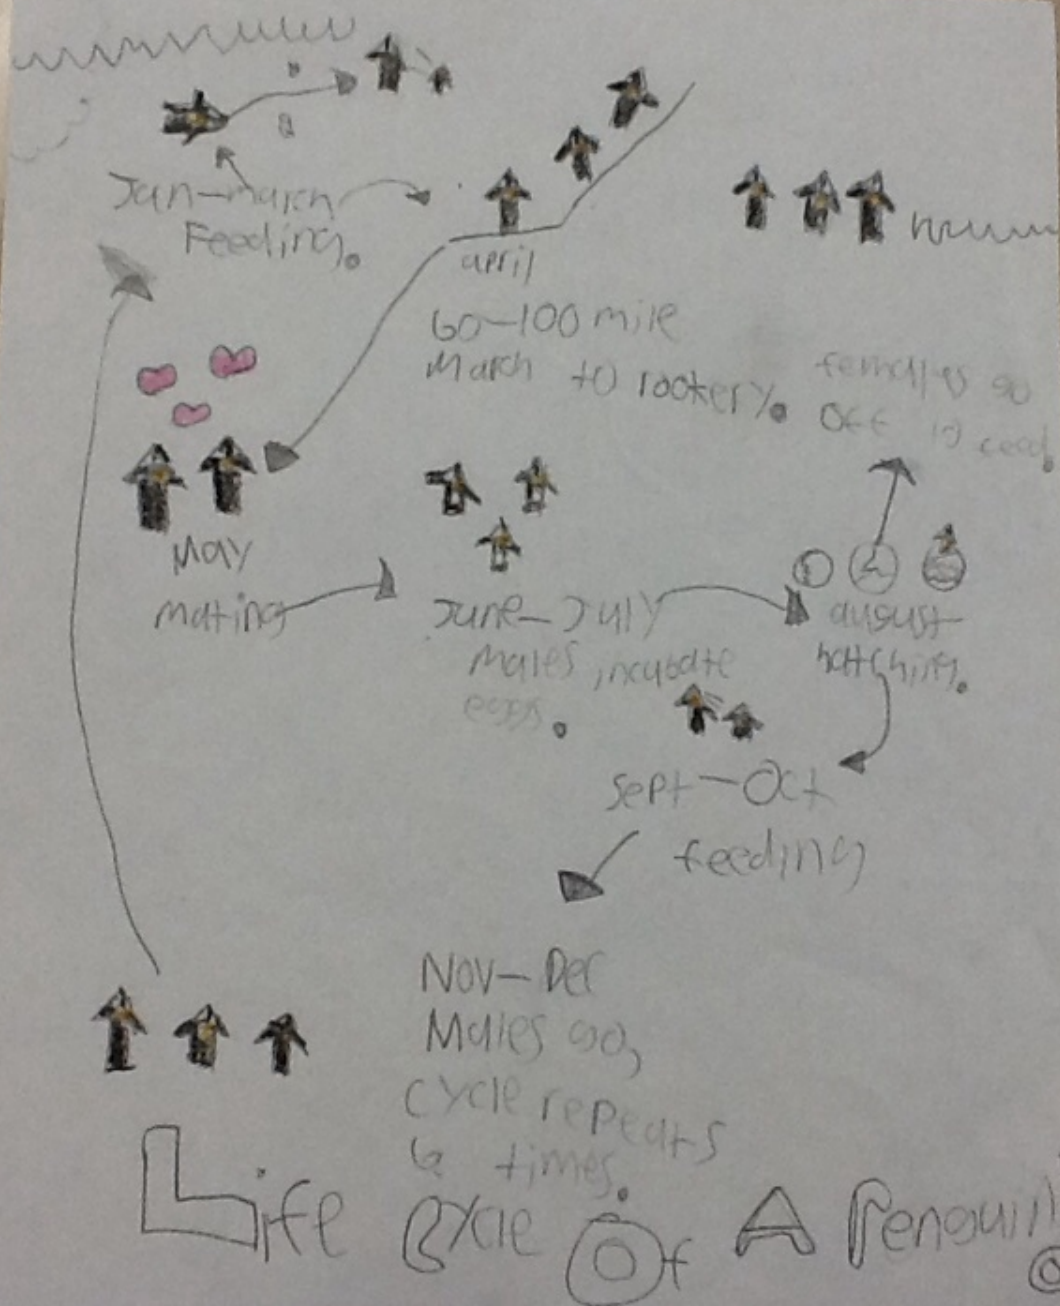 Jan-march
Feeding.
april
60-100 mile
March to rookery.
females go
off to feed.
May
mating
June-July
males incubate
eggs.
august
hatching.
Sept-Oct
feeding
Nov-Dec
Males go,
cycle repeats
6 times.
Life Cycle Of A Penguin